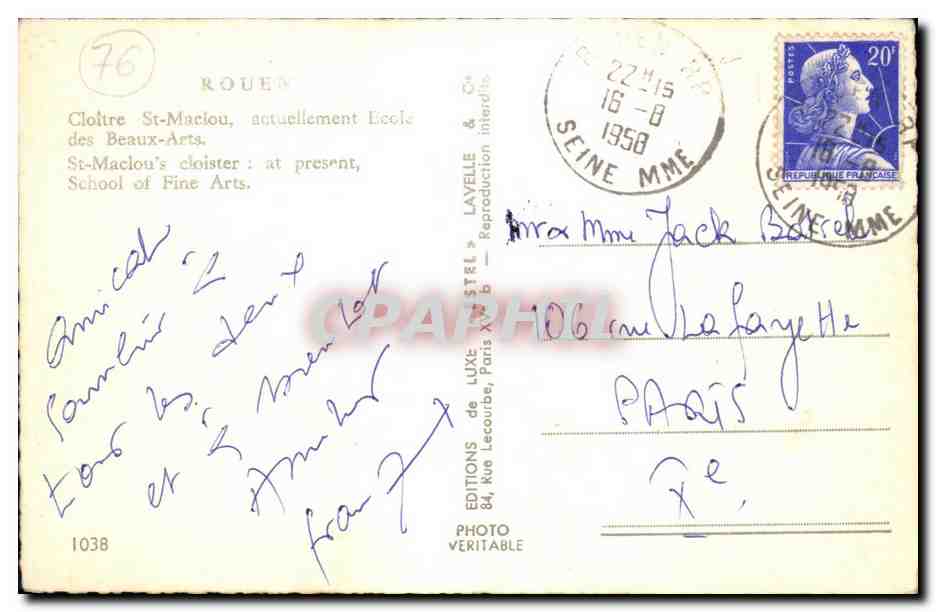 76
ROUEN
Cloître St-Maclou, actuellement Ecole
des Beaux-Arts.
St-Maclou's cloister : at present,
School of Fine Arts.
Amical
souvenir à
tous les deux
et à bientôt
1038
EDITIONS de LUXE « ESTEL » LAVELLE & Cie
84, Rue Lecourbe, Paris XV — Reproduction interdite
PHOTO
VERITABLE
CPAPHIL
22H15
16-8
1958
SEINE MME
POSTES
20F
REPUBLIQUE FRANÇAISE
SEINE MME
Mme Jack
106 rue Lafayette
PARIS
Xe